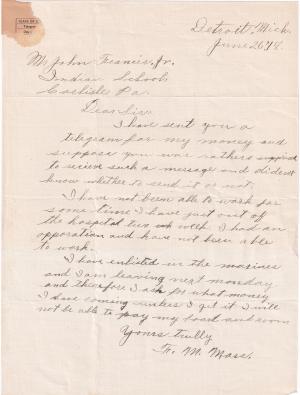 Detroit, Mich.
June 26, '18.
Mr John Francis, Jr.
Indian School
Carlisle Pa.
Dear Sir:
I have sent you a
telegram for my money and
suppose you was rather surprised
to recieve such a message and did not
know whether to send it or not.
I have not been able to work for
some time I have just out off
the hospital this week. I had an
opporation and have not been able
to work.
I have enlisted in the marines
and I am leaving next monday
and therefore I ask for what money
I have coming unless I get it I will
not be able to pay my board and room
Yours trully